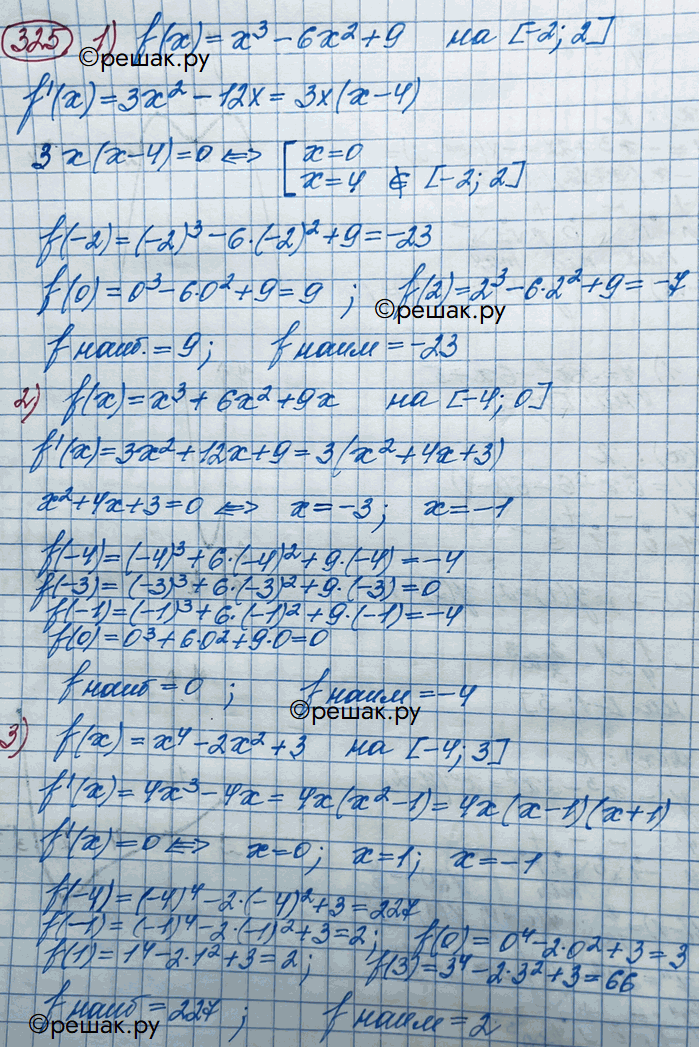 325. 1) f(x) = x³ − 6x² + 9 на [−2; 2]
©решак.ру
f'(x) = 3x² − 12x = 3x(x−4)
3x(x−4) = 0 <=> [ x = 0
x = 4 ∉ [−2; 2]
f(−2) = (−2)³ − 6·(−2)² + 9 = −23
f(0) = 0³ − 6·0² + 9 = 9 ; f(2) = 2³ − 6·2² + 9 = −7
©решак.ру
f наиб. = 9; f наим = −23
2) f(x) = x³ + 6x² + 9x на [−4; 0]
f'(x) = 3x² + 12x + 9 = 3(x² + 4x + 3)
x² + 4x + 3 = 0 <=> x = −3; x = −1
f(−4) = (−4)³ + 6·(−4)² + 9·(−4) = −4
f(−3) = (−3)³ + 6·(−3)² + 9·(−3) = 0
f(−1) = (−1)³ + 6·(−1)² + 9·(−1) = −4
f(0) = 0³ + 6·0² + 9·0 = 0
f наиб = 0 ; f наим = −4
©решак.ру
3) f(x) = x⁴ − 2x² + 3 на [−4; 3]
f'(x) = 4x³ − 4x = 4x(x² − 1) = 4x(x−1)(x+1)
f'(x) = 0 <=> x = 0; x = 1; x = −1
f(−4) = (−4)⁴ − 2·(−4)² + 3 = 227
f(−1) = (−1)⁴ − 2·(−1)² + 3 = 2; f(0) = 0⁴ − 2·0² + 3 = 3
f(1) = 1⁴ − 2·1² + 3 = 2; f(3) = 3⁴ − 2·3² + 3 = 66
f наиб = 227 ; f наим = 2
©решак.ру